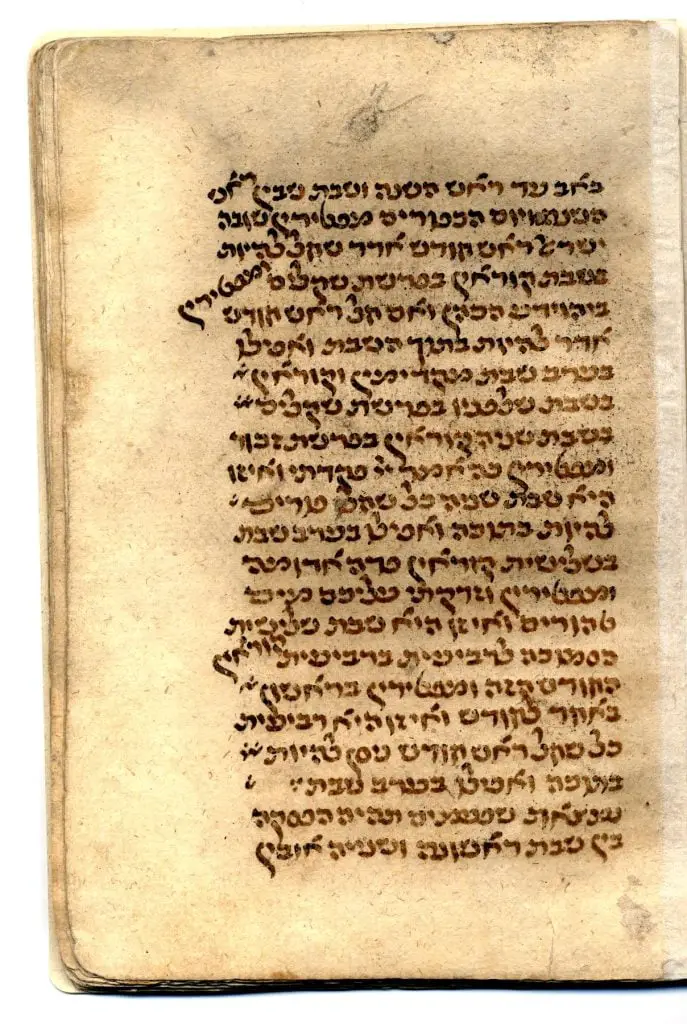 באב עד ראש השנה ושבת שבין ראש
השנה ויום הכפורים מפטירין שובה
ישראל ראש חודש אדר שחל להיות
בשבת קוראין בפרשת שקלים ומפטירין
ביהוידע הכהן ואם חל ראש חודש
אדר להיות בתוך השבת ואפילו
בערב שבת מקדימין וקוראין
בשבת שלפניו בפרשת שקלים
בשבת שניה קוראין בפרשת זכור
ומפטירין כה אמר יי פקדתי ואיזו
היא שבת שניה כל שחל פורים
להיות בתוכה ואפילו בערב שבת
בשלישית קוראין פרה אדומה
ומפטירין וזרקתי עליכם מים
טהורים ואיזו היא שבת שלישית
הסמוכה לרביעית ברביעית קוראין
החודש הזה ומפטירין בראשון
באחד לחודש ואיזו היא רביעית
כל שחל ראש חודש ניסן להיות
בתוכה ואפילו בערב שבת
נמצאת שפעמים תהיה הפסקה
בין שבת ראשונה ושניה או בין